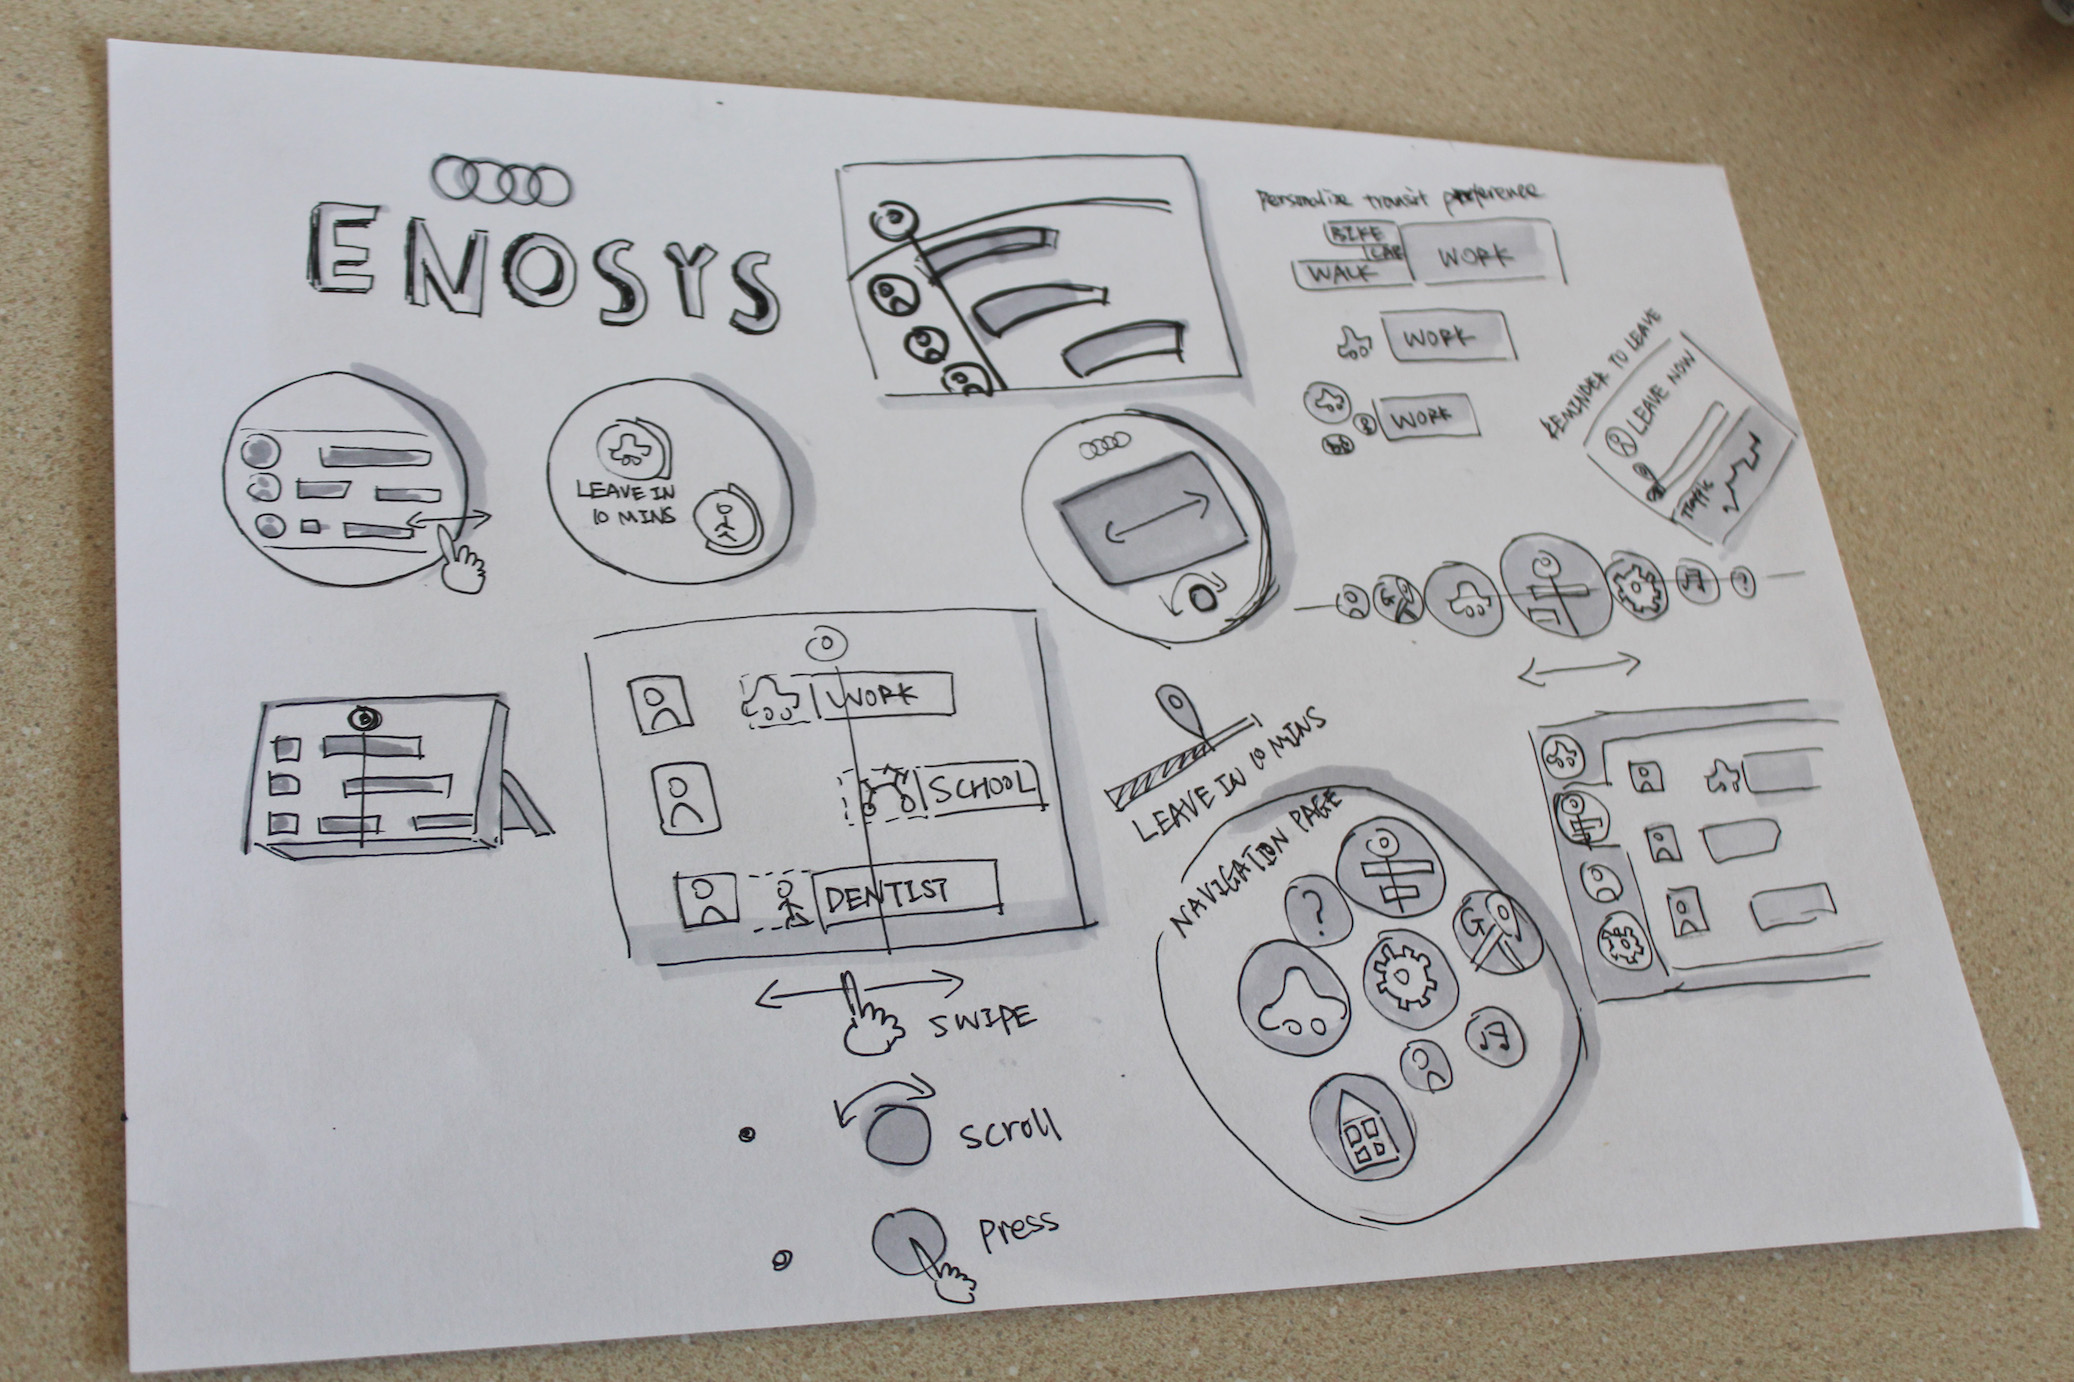 ENOSYS
Personalize transit preference
BIKE
CAR
WALK
WORK
WORK
WORK
REMINDER TO LEAVE
LEAVE NOW
Traffic
LEAVE IN
10 MINS
WORK
SCHOOL
DENTIST
LEAVE IN 10 MINS
NAVIGATION PAGE
?
?
SWIPE
scroll
press